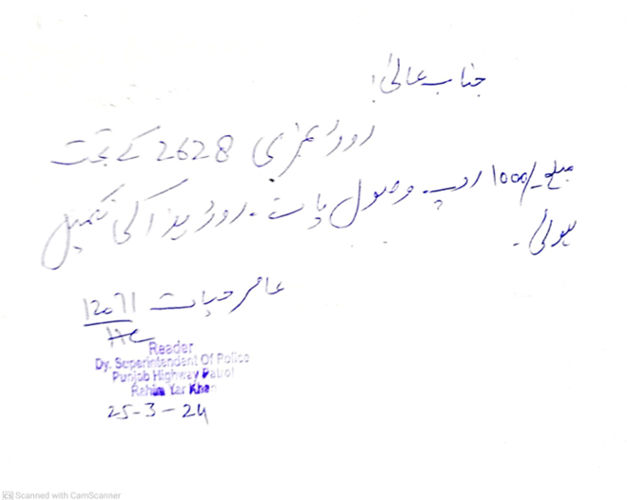 جناب عالیٰ!
روڈ نمبری 2628 کے تحت
مبلغ 1000/- روپے وصول پائے۔ کی تکمیل
ہوئی۔
عامر حیات 12071
HC
Reader
Dy. Superintendent Of Police
Punjab Highway Patrol
Rahim Yar Khan
25-3-24
CS Scanned with CamScanner